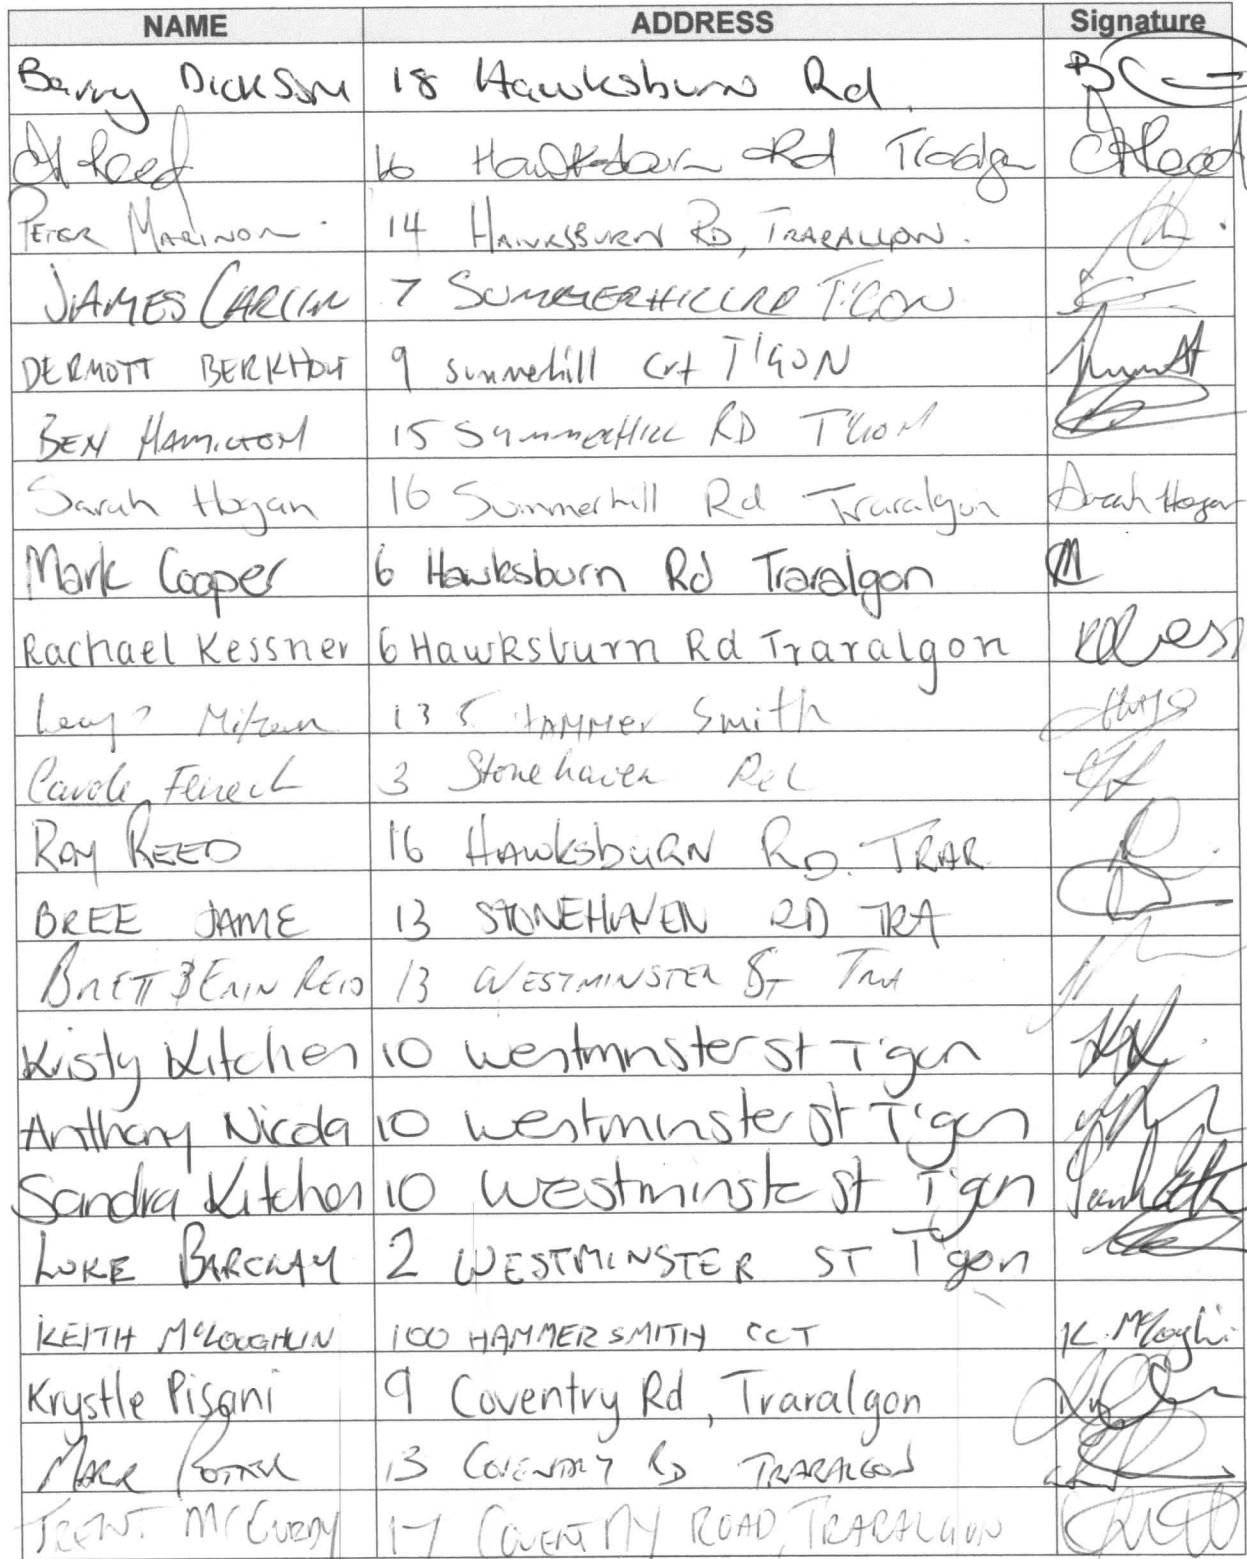 NAME ADDRESS Signature
Barry Dickson 18 Hawksburn Rd.
Reed 16 Hawksburn Rd Reed
PETER MARINON 14 HAWKSBURN RD, TRARALGON.
JAMES CARLIN 7 SUMMERHILL RD T'GON
DERMOTT BERKHOUT 9 Summerhill Crt T'GON
BEN HAMILTON 15 SUMMERHILL RD T'GON
Sarah Hogan 16 Summerhill Rd Traralgon Sarah Hogan
Mark Cooper 6 Hawksburn Rd Traralgon M
Rachael Kessner 6 Hawksburn Rd Traralgon
HAMMER Smith
Carole Fenech 3 Stonehaven Rd
ROY REED 16 HAWKSBURN RD. TRAR
BREE JAME 13 STONEHAVEN RD TRA
BRETT & ERIN REID 13 WESTMINSTER ST TRA
Kristy Kitchen 10 Westminster st T'gon
Anthony Nicola 10 Westminster st T'gon
Sandra Kitchen 10 Westminste st T'gon
LUKE BARCLAY 2 WESTMINSTER ST T'gon
KEITH McLOUGHLIN 100 HAMMERSMITH CCT K. McLoghli
Krystle Pisani 9 Coventry Rd, Traralgon
MARK POTTER 13 COVENTRY RD TRARALGON
TRENT McCURDY 17 COVENTRY ROAD, TRARALGON